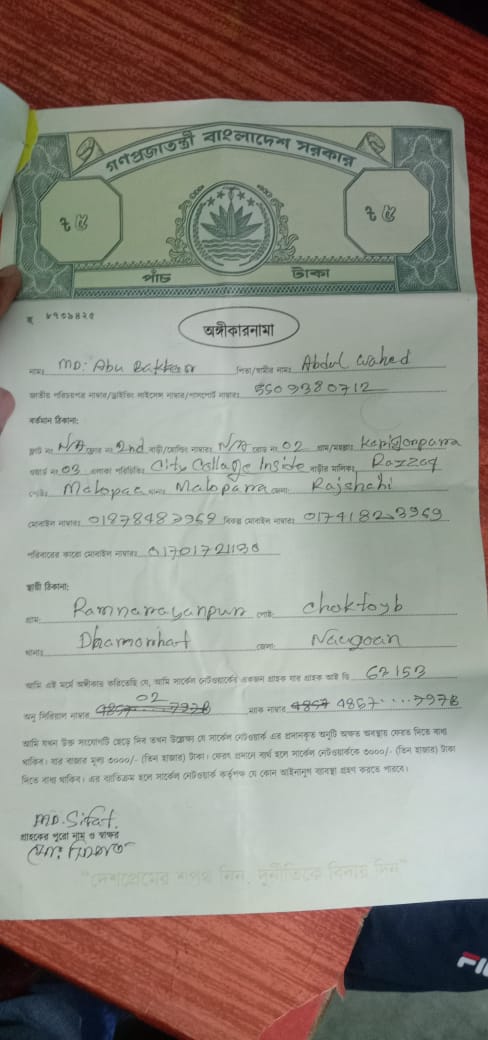 গণপ্রজাতন্ত্রী বাংলাদেশ সরকার
৳ ৫ ৳ ৫
পাঁচ টাকা
অঙ্গীকারনামা
নামঃ MD: Abu Bakker পিতা/স্বামীর নামঃ Abdul wahed
জাতীয় পরিচয়পত্র নাম্বার/ড্রাইভিং লাইসেন্স নাম্বার/পাসপোর্ট নাম্বারঃ 5509380712
বর্তমান ঠিকানা:
ফ্ল্যাট নং N/A ফ্লোর নং 2nd বাড়ী/হোল্ডিং নাম্বারঃ N/A রোড নং 02 গ্রাম/মহল্লাঃ
ওয়ার্ড নং 03 এলাকা পরিচিতিঃ City Collage Inside বাড়ীর মালিকঃ Razzaq
পোষ্টঃ থানাঃ Malopara জেলাঃ Rajshahi
মোবাইল নাম্বারঃ বিকল্প মোবাইল নাম্বারঃ
পরিবারের কারো মোবাইল নাম্বারঃ
স্থায়ী ঠিকানা:
গ্রামঃ Ramnarayanpur পোষ্টঃ
থানাঃ Dhamorhat জেলাঃ Naugoan
আমি এই মর্মে অঙ্গীকার করিতেছি যে, আমি সার্কেল নেটওয়ার্কের একজন গ্রাহক যার গ্রাহক আই ডি 62153
অনু সিরিয়াল নাম্বার 02 ম্যাক নাম্বারঃ
আমি যখন উক্ত সংযোগটি ছেড়ে দিব তখন উল্লেখ্য যে সার্কেল নেটওয়ার্ক এর প্রদানকৃত অনুটি অক্ষত অবস্থায় ফেরত দিতে বাধ্য
থাকিব। যার বাজার মূল্য ৩০০০/- (তিন হাজার) টাকা। ফেরৎ প্রদানে ব্যর্থ হলে সার্কেল নেটওয়ার্ককে ৩০০০/- (তিন হাজার) টাকা
দিতে বাধ্য থাকিব। এর ব্যতিক্রম হলে সার্কেল নেটওয়ার্ক কর্তৃপক্ষ যে কোন আইনানুগ ব্যবস্থা গ্রহণ করতে পারবে।
MD. Sifat.
গ্রাহকের পুরো নাম ও স্বাক্ষর
"দেশপ্রেমের শপথ নিন, দুর্নীতিকে বিদায় দিন"